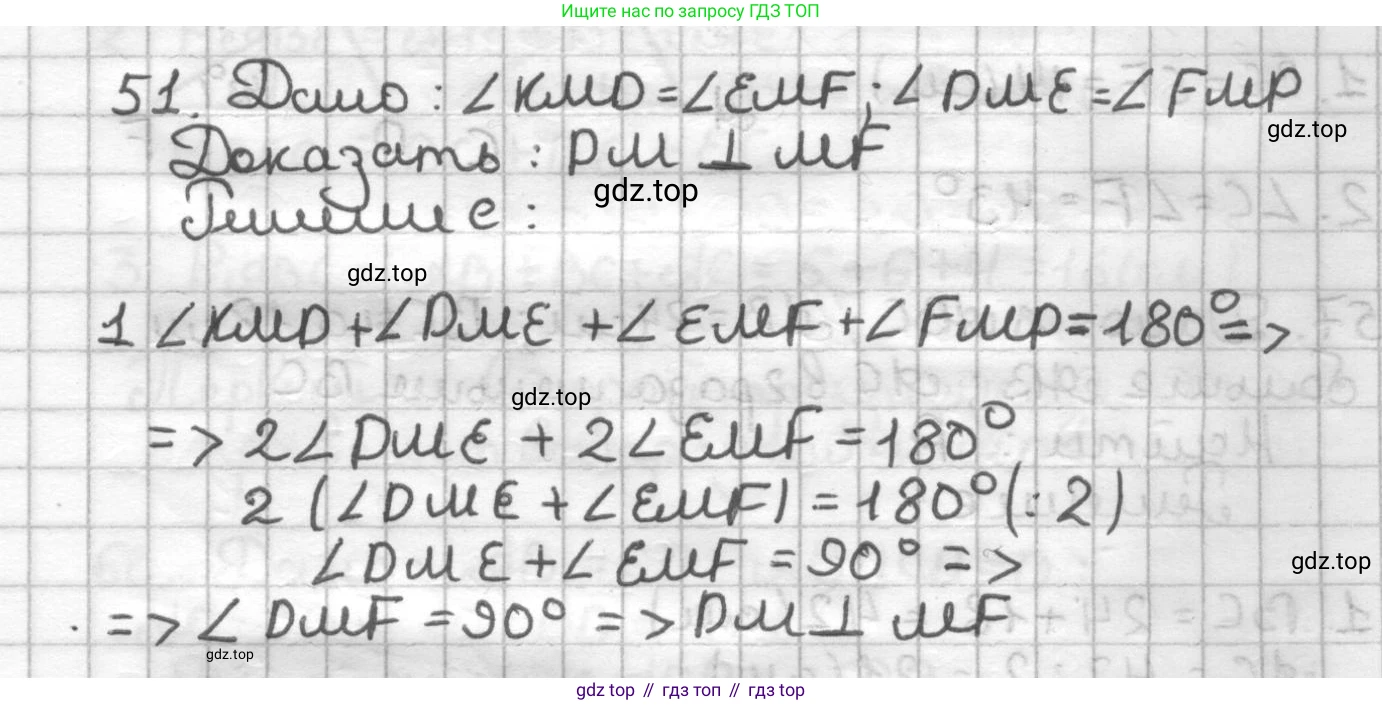 Ищите нас по запросу ГДЗ ТОП
51. Дано: ∠KMD = ∠EMF; ∠DME = ∠FMP
gdz.top
Доказать: DM ⊥ MF
gdz.top
Решение:
gdz.top
1 ∠KMD + ∠DME + ∠EMF + ∠FMP = 180° =>
gdz.top
=> 2∠DME + 2∠EMF = 180°
2 (∠DME + ∠EMF) = 180° (:2)
∠DME + ∠EMF = 90° =>
gdz.top
=> ∠DMF = 90° => DM ⊥ MF
gdz.top
gdz top // гдз топ // gdz top